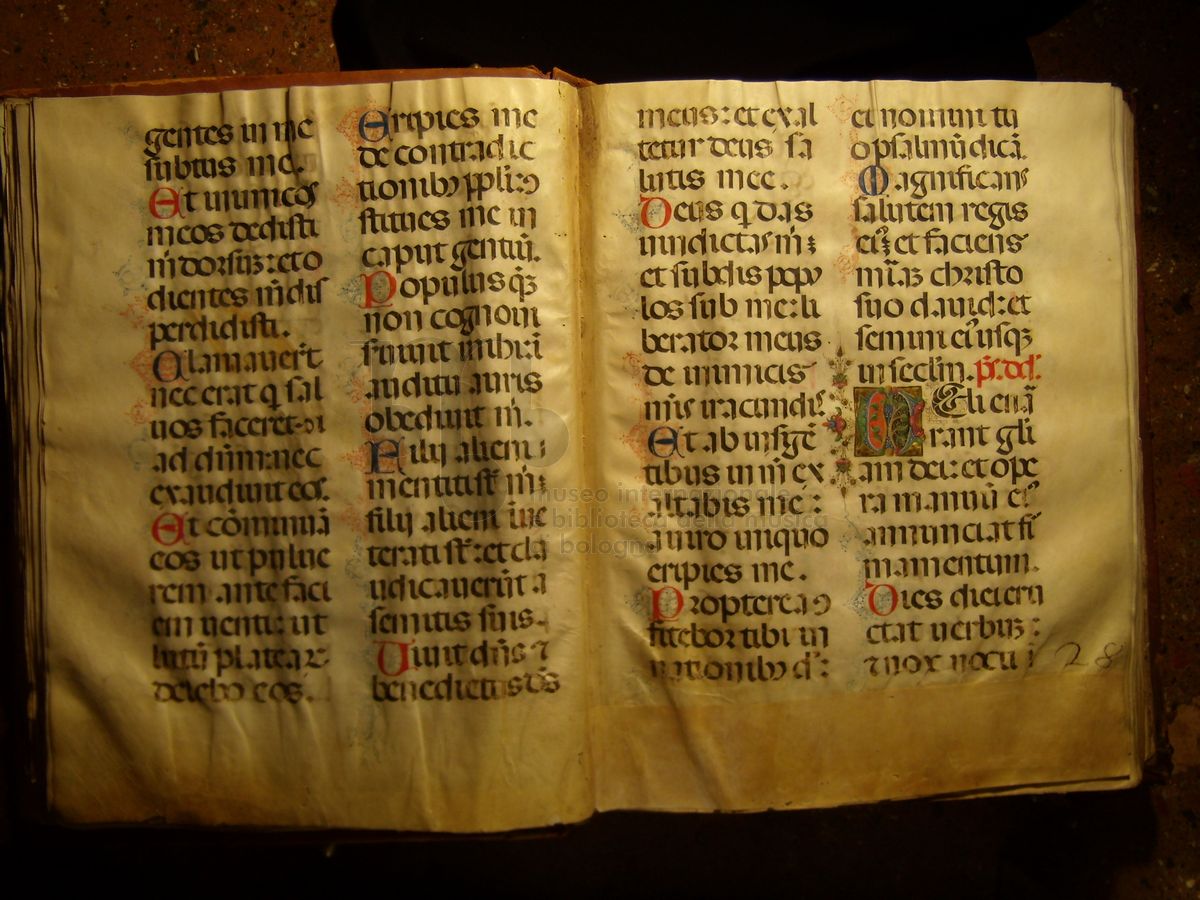 gentes in me
subtus me.
Et inimicos
meos dedisti
m̄ dorsuz: et o
dientes m̄ dis
perdidisti.
Clamauer̄t
nec erat q̄ sal
uos faceret: ⁊
ad dn̄m: nec
exaudiuit eos.
Et cōminuā
eos ut pulue
rem ante faci
em uenti: ut
lutū platea⁊
delebo eos.
Eripies me
de contradic
tionibꝯ ppl̄i: ꝯ
stitues me in
caput gentiū.
Populus q̄z
non cognoui
seruiuit mihi: ī
auditu auris
obediuit m̄.
Filij alieni
mentiti s̄t m̄:
filij alieni īue
terati s̄t: et cla
udicauerūt a
semitis suis.
Uiuit dn̄s ⁊
benedictus ds̄
meus: et exal
tetur deus sa
lutis mee.
Deus q̄ das
uindictas m̄:
et subdis popu
los sub me: li
berator meus
de inimicis
meis iracundis
Et ab insge
tibus in m̄ ex
altabis me:
a uiro iniquo
eripies me.
Propterea ꝯ
fitebor tibi in
nationibꝯ d̄:
et nomini tu
o psalmū dicā.
Magnificans
salutem regis
eiꝰ et faciens
mīaz christo
suo dauid: et
semini eiꝰ usqz
in seclm̄. ps̄. dd.
Celi enā
rant gli
am dei: et ope
ra manuū eiꝰ
annunciat fi
rmamentum.
Dies diei eru
ctat uerbuz:
⁊ nox nocti i
28
museo internazionale
biblioteca della musica
bologna